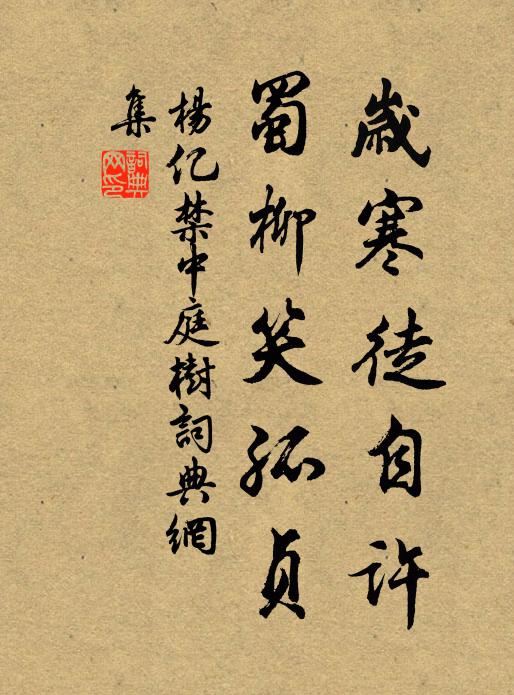 歲寒徒自許
蜀柳笑孤貞
楊亿禁中庭樹詞典網
集
詞典
网印